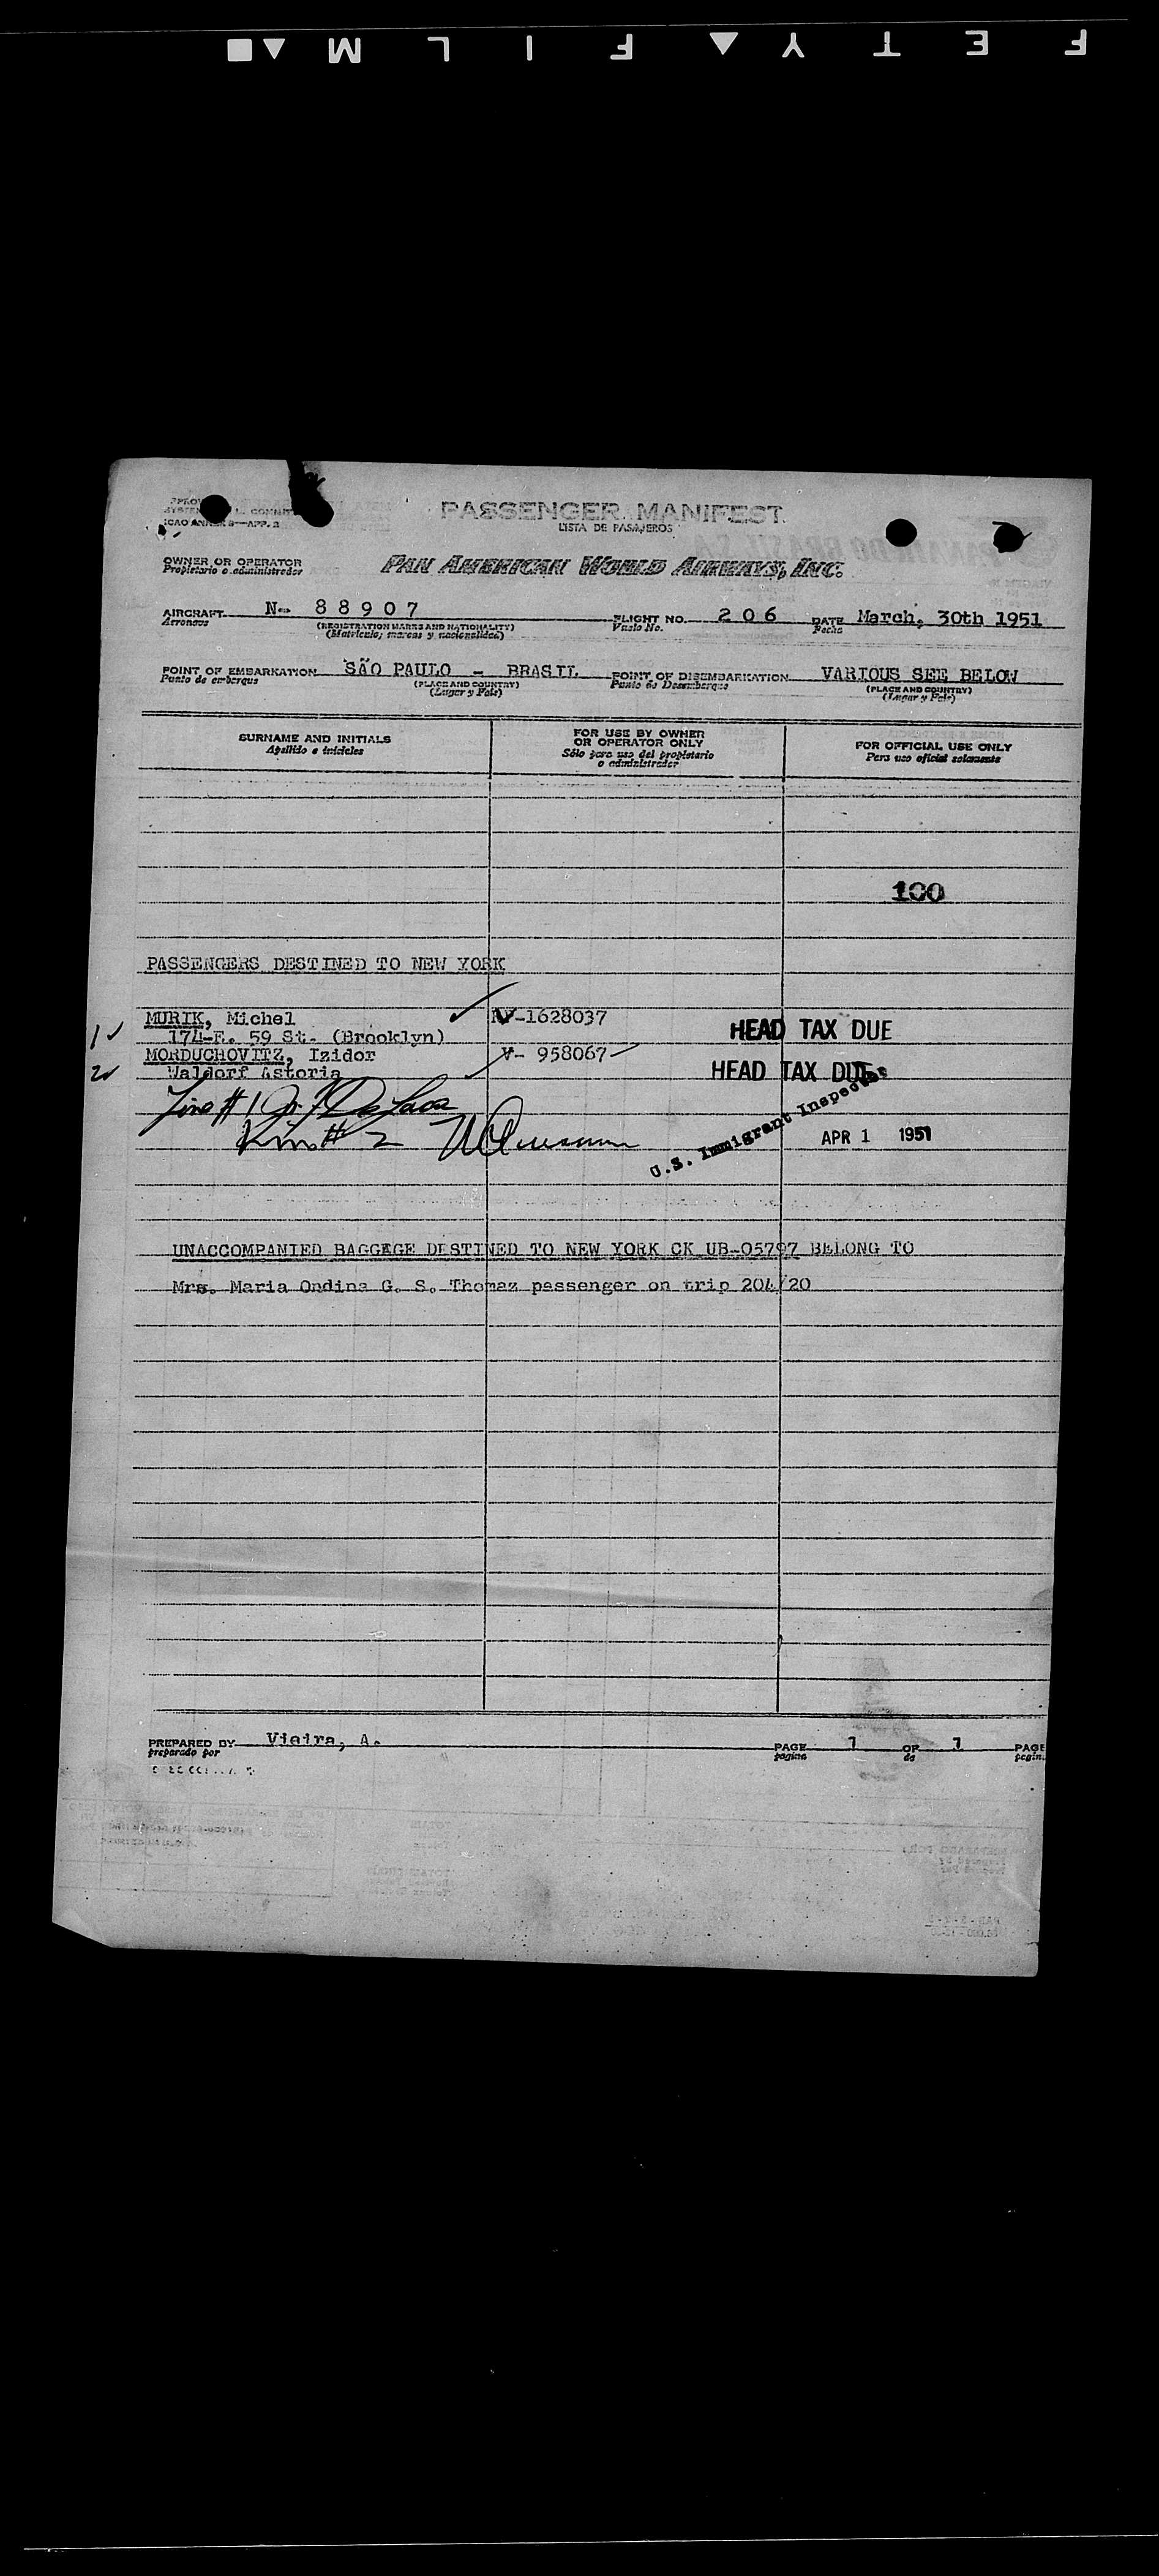 F E T Y ▲ F I L M ▲ ■
ICAO ANNEX 9—APP. 3
PASSENGER MANIFEST
LISTA DE PASAJEROS
OWNER OR OPERATOR
Propietario o administrador
PAN AMERICAN WORLD AIRWAYS, INC.
AIRCRAFT N- 8 8 9 0 7 FLIGHT NO. 2 0 6 DATE March, 30th 1951
Aeronave (REGISTRATION MARKS AND NATIONALITY) Vuelo No. Fecha
(Matrícula, marcas y nacionalidad)
POINT OF EMBARKATION SÃO PAULO - BRASIL POINT OF DISEMBARKATION VARIOUS SEE BELOW
Punto de embarque (PLACE AND COUNTRY) Punto de Desembarque (PLACE AND COUNTRY)
(Lugar y País) (Lugar y País)
SURNAME AND INITIALS FOR USE BY OWNER OR OPERATOR ONLY FOR OFFICIAL USE ONLY
Apellido e iniciales Sólo para uso del propietario o administrador Para uso oficial solamente
100
PASSENGERS DESTINED TO NEW YORK
MURIK, Michel V-1628037 HEAD TAX DUE
1 ✓ 174-E. 59 St. (Brooklyn)
MORDUCHOVITZ, Izidor V- 958067 HEAD TAX DUE
2 ✓ Waldorf Astoria
Line # 1
# 2
U.S. Immigrant Inspector
APR 1 1951
UNACCOMPANIED BAGGEGE DESTINED TO NEW YORK CK UB-05797 BELONG TO
Mrs. Maria Ondina G. S. Thomaz passenger on trip 204/20
PREPARED BY Vieira, A. PAGE 1 OF 1 PAGE
preparado por pagina de pagin.